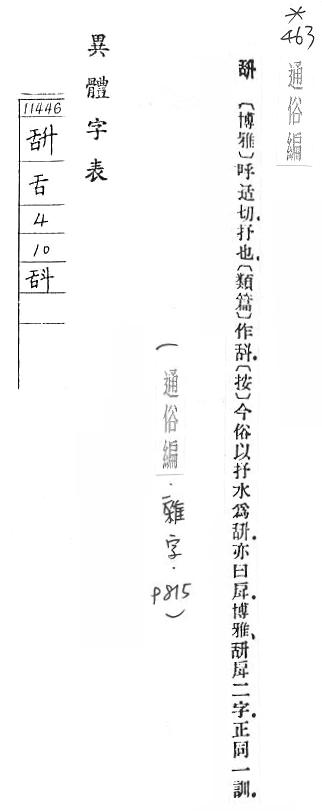 ※463
通俗編
〔博雅〕呼适切.抒也.〔類篇〕作㪶.〔按〕今俗以抒水爲.亦曰戽.博雅、戽二字.正同一訓.
(通俗編.雜字.P815)
異體字表
11446
舌
4
10
㪶